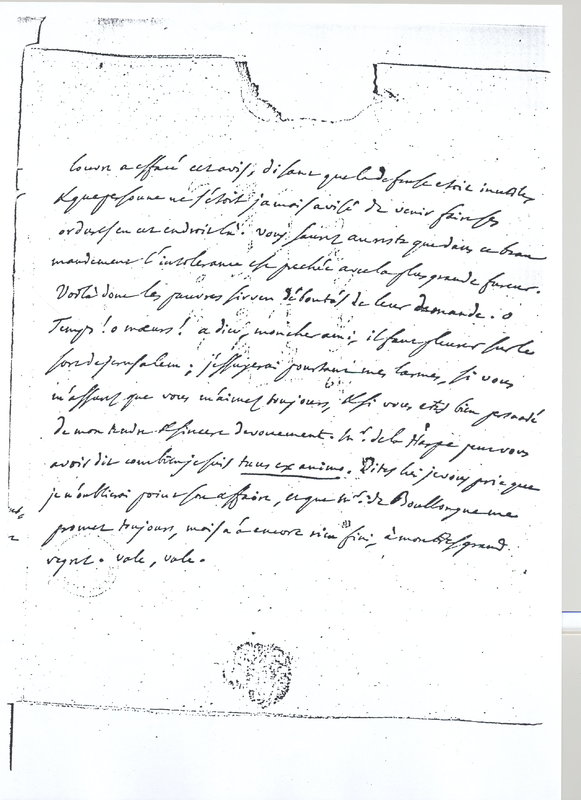 louvre a effacé cet avis, disant que la defense etoit inutile,
& que personne ne s'étoit jamais avisé de venir faire ses
ordures en cet endroit là. vous saurez au reste que dans ce beau
mandement l'intolerance est prechée avec la plus grande fureur.
Voilà donc les pauvres sirven déboutés de leur demande. o
Temps! o mœurs! a dieu, mon cher ami; il faut pleurer sur le
sort de jerusalem; j'essuyerai pourtant mes larmes, si vous
m'assurez que vous m'aimez toujours, & si vous etes bien persuadé
de mon tendre & sincere devouement. Mr. de la Harpe peut vous
avoir dit combien je suis tuus ex animo. Dites lui je vous prie que
je n'oublierai point son affaire, et que Mr. de Boullongne me
promet toujours, mais n'a encore rien fini, à mon très grand
regret. vale, vale.